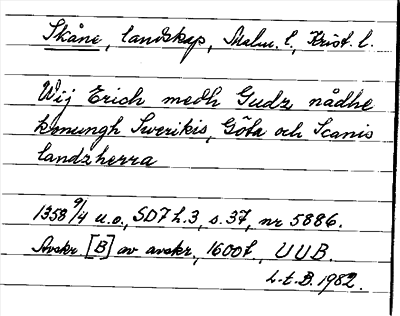 Skåne, landskap, Malm. l., Krist. l.
Wij Erich medh Gudz nådhe
konungh Swerikis, Göta och Scanis
landzherra
1358 9/4 u.o., SD7 h.3, s. 37, nr 5886.
Avskr. [B] av avskr., 1600t., UUB.
L.t.B. 1982.